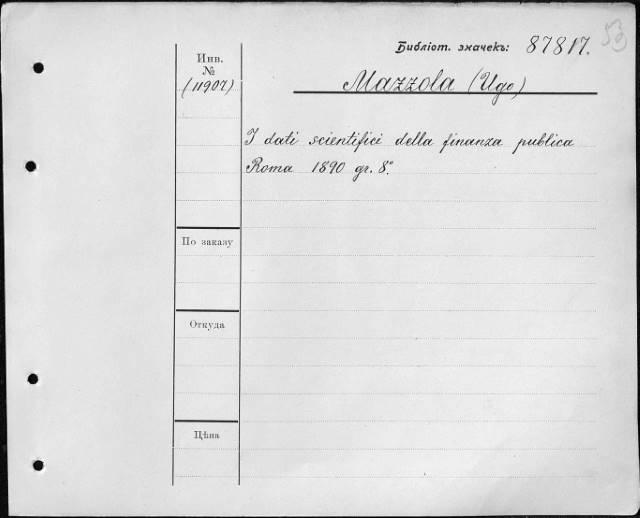 53
Библіот. значекъ: 87817.
Инв.
№
(11907)
Mazzola (Ugo)
I dati scientifici della finanza publica
Roma 1890 gr. 8º.
По заказу
Откуда
Цѣна